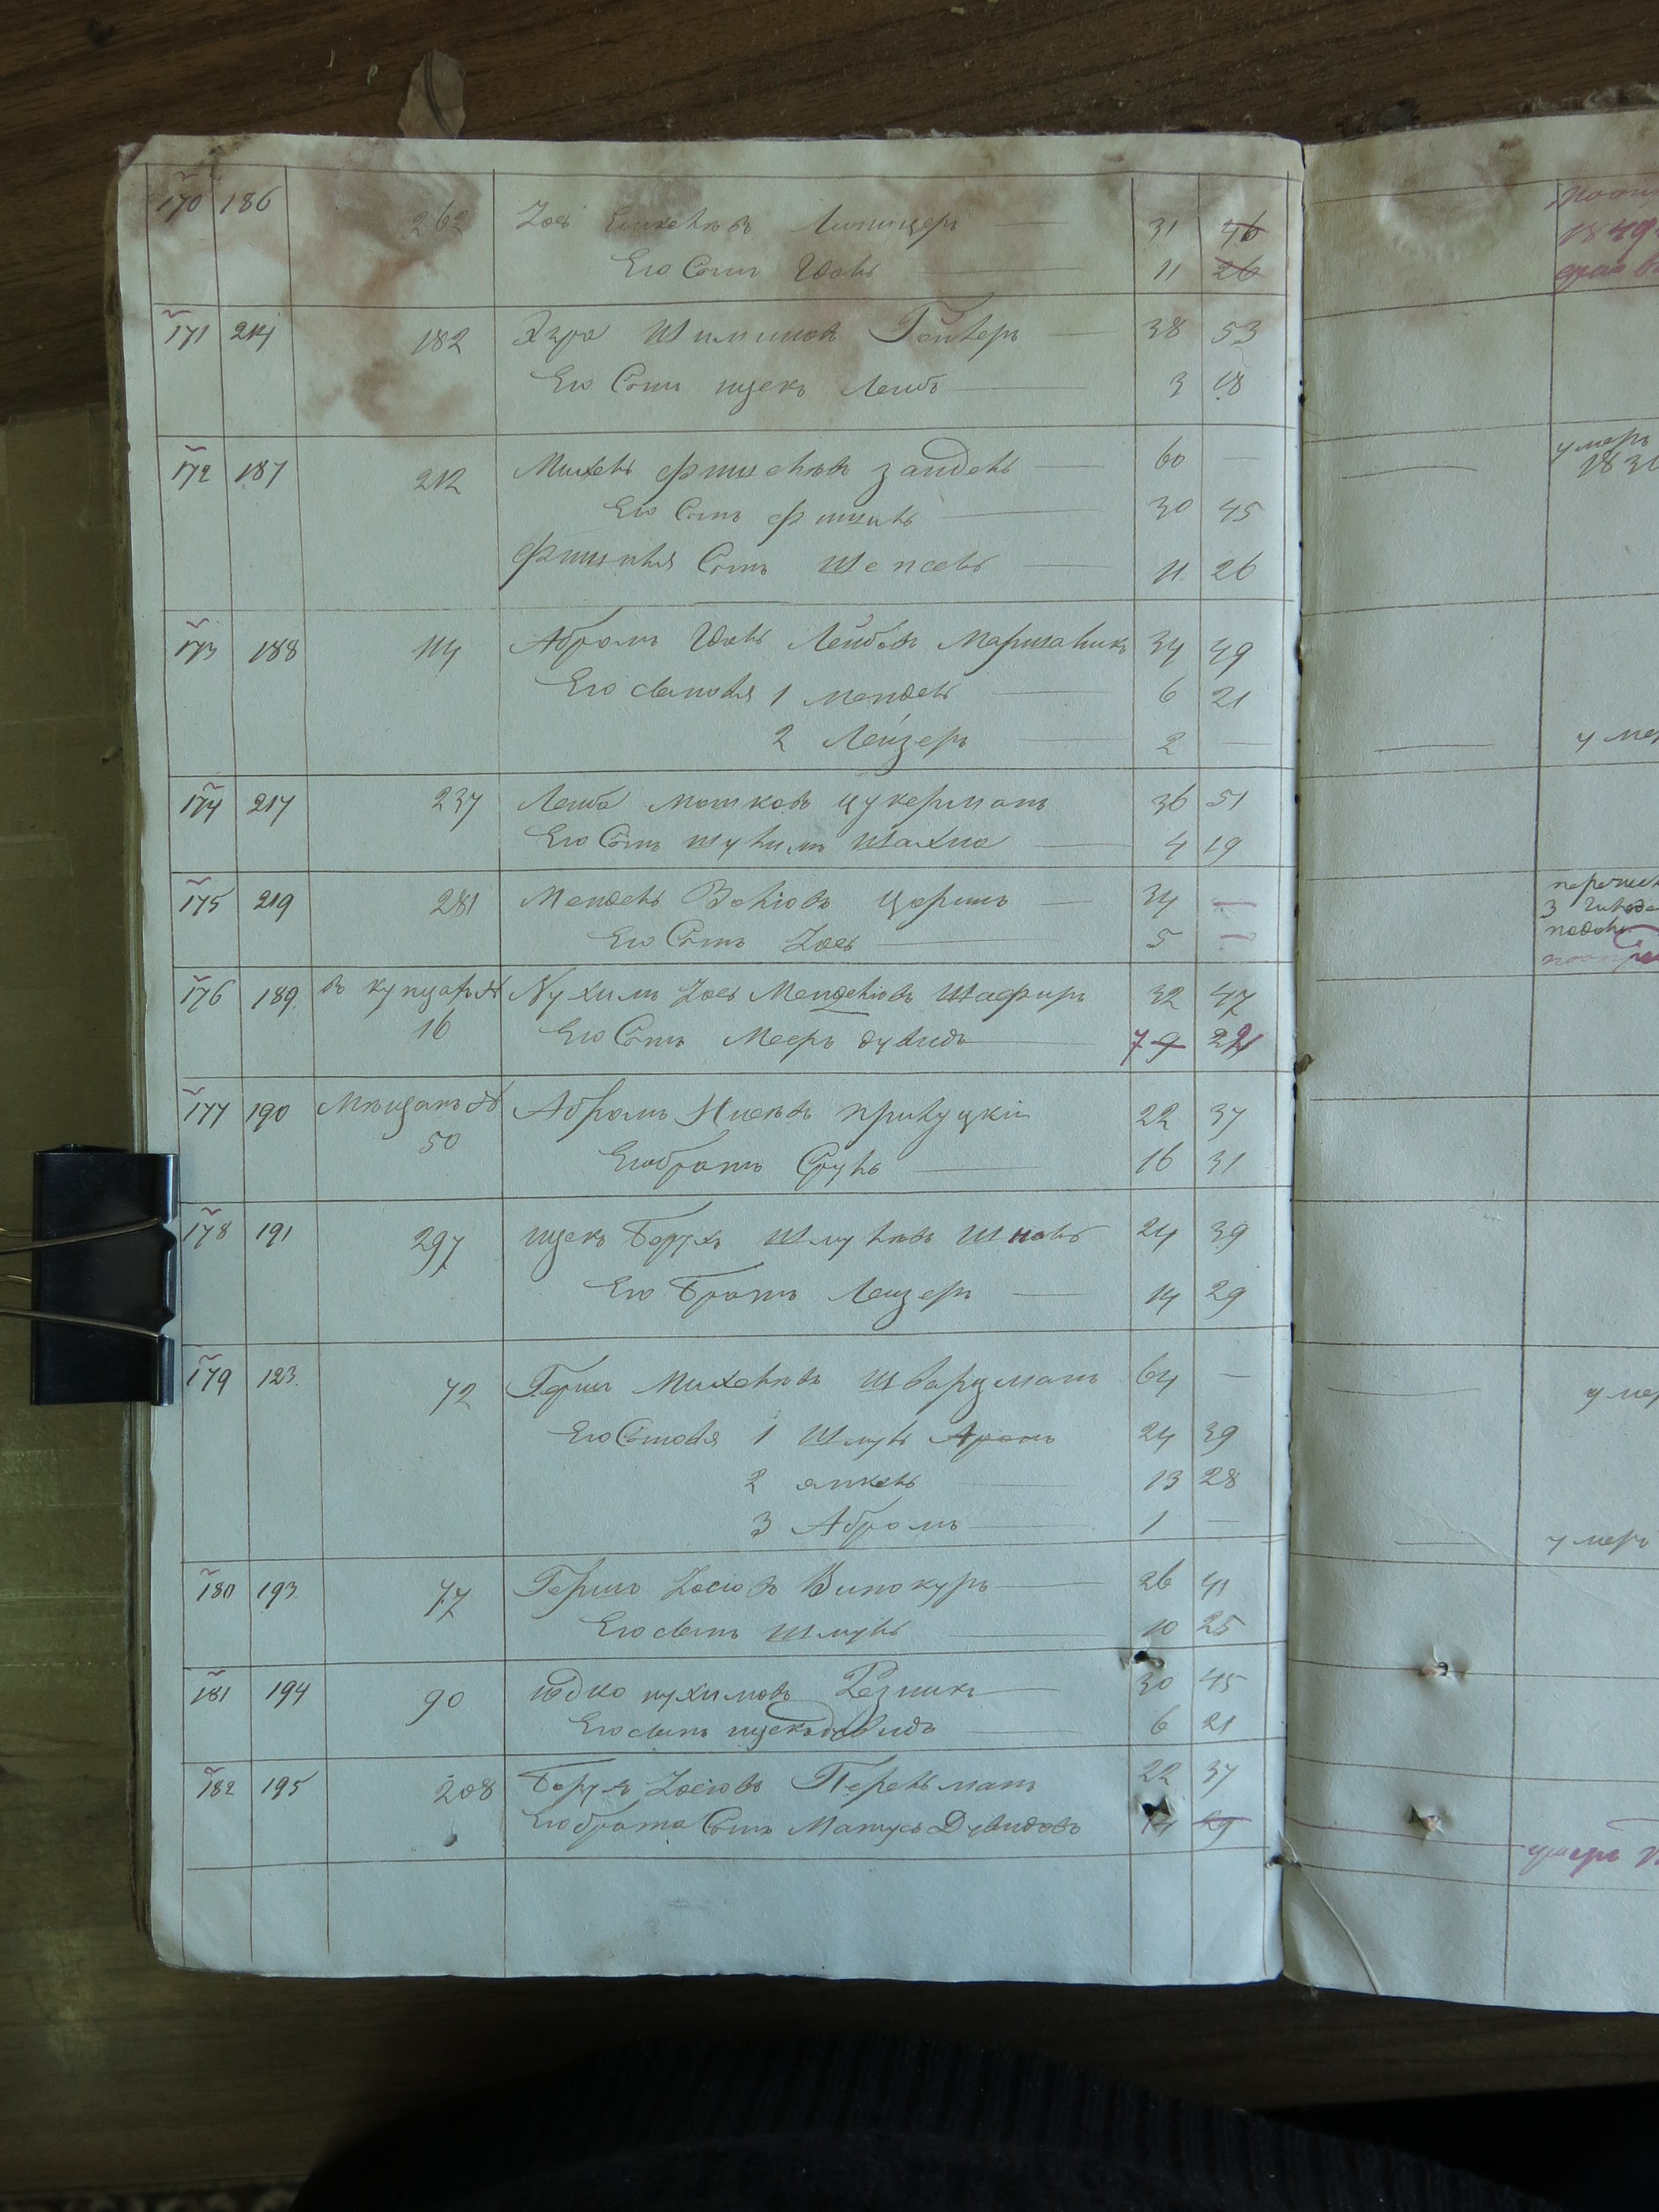 170 186 262 Іось Янкелевъ Липицеръ 31 46
Его Сынъ Іовль 11 26
171 214 182 Эзра Шимшовъ Гейлеръ 38 53
Его Сынъ ицекъ Лейбъ 3 18
172 187 212 Михель фишелевъ зайдель 60 —
Его Сынъ фишель 30 45
фишеля Сынъ Шепсель 11 26
173 188 114 Абрамъ Іовль Лейбовъ Маришальикъ 34 49
Его сыновья 1 мендель 6 21
2 Лейзеръ 2 —
174 217 237 Лейба мошковъ цукерманъ 36 51
Его Сынъ шулимъ шахна 4 19
175 219 281 Мендель Волковъ царинъ 34 —
Его Сынъ Іось 5 —
176 189 въ купцахъ № Нухимъ Іось Менделіовъ Шафиръ 32 47
16 Его Сынъ Мееръ дувидъ 7 9 22
177 190 Мещанъ № Абрамъ Ицковъ прилуцкій 22 37
50 Его братъ Сруль 16 31
178 191 297 ицекъ Борухъ Шмулевъ Шноль 24 39
Его Братъ Лейзеръ 14 29
179 123 72 Гершъ Михелевъ шварцманъ 64 —
Его Сыновья 1 Шмуль Аронъ 24 39
2 янкель 13 28
3 Абрамъ 1 —
180 193 77 Гершъ Іосіовъ Винокуръ 26 41
Его сынъ Шмуль 10 25
181 194 90 юдко нухимовъ Резникъ 30 45
Его сынъ ицекъ давидъ 6 21
182 195 208 Борухъ Іосіовъ Перельманъ 22 37
Его брата Сынъ Матусъ Дувидовъ 14 29
умеръ
1830
умеръ
умеръ